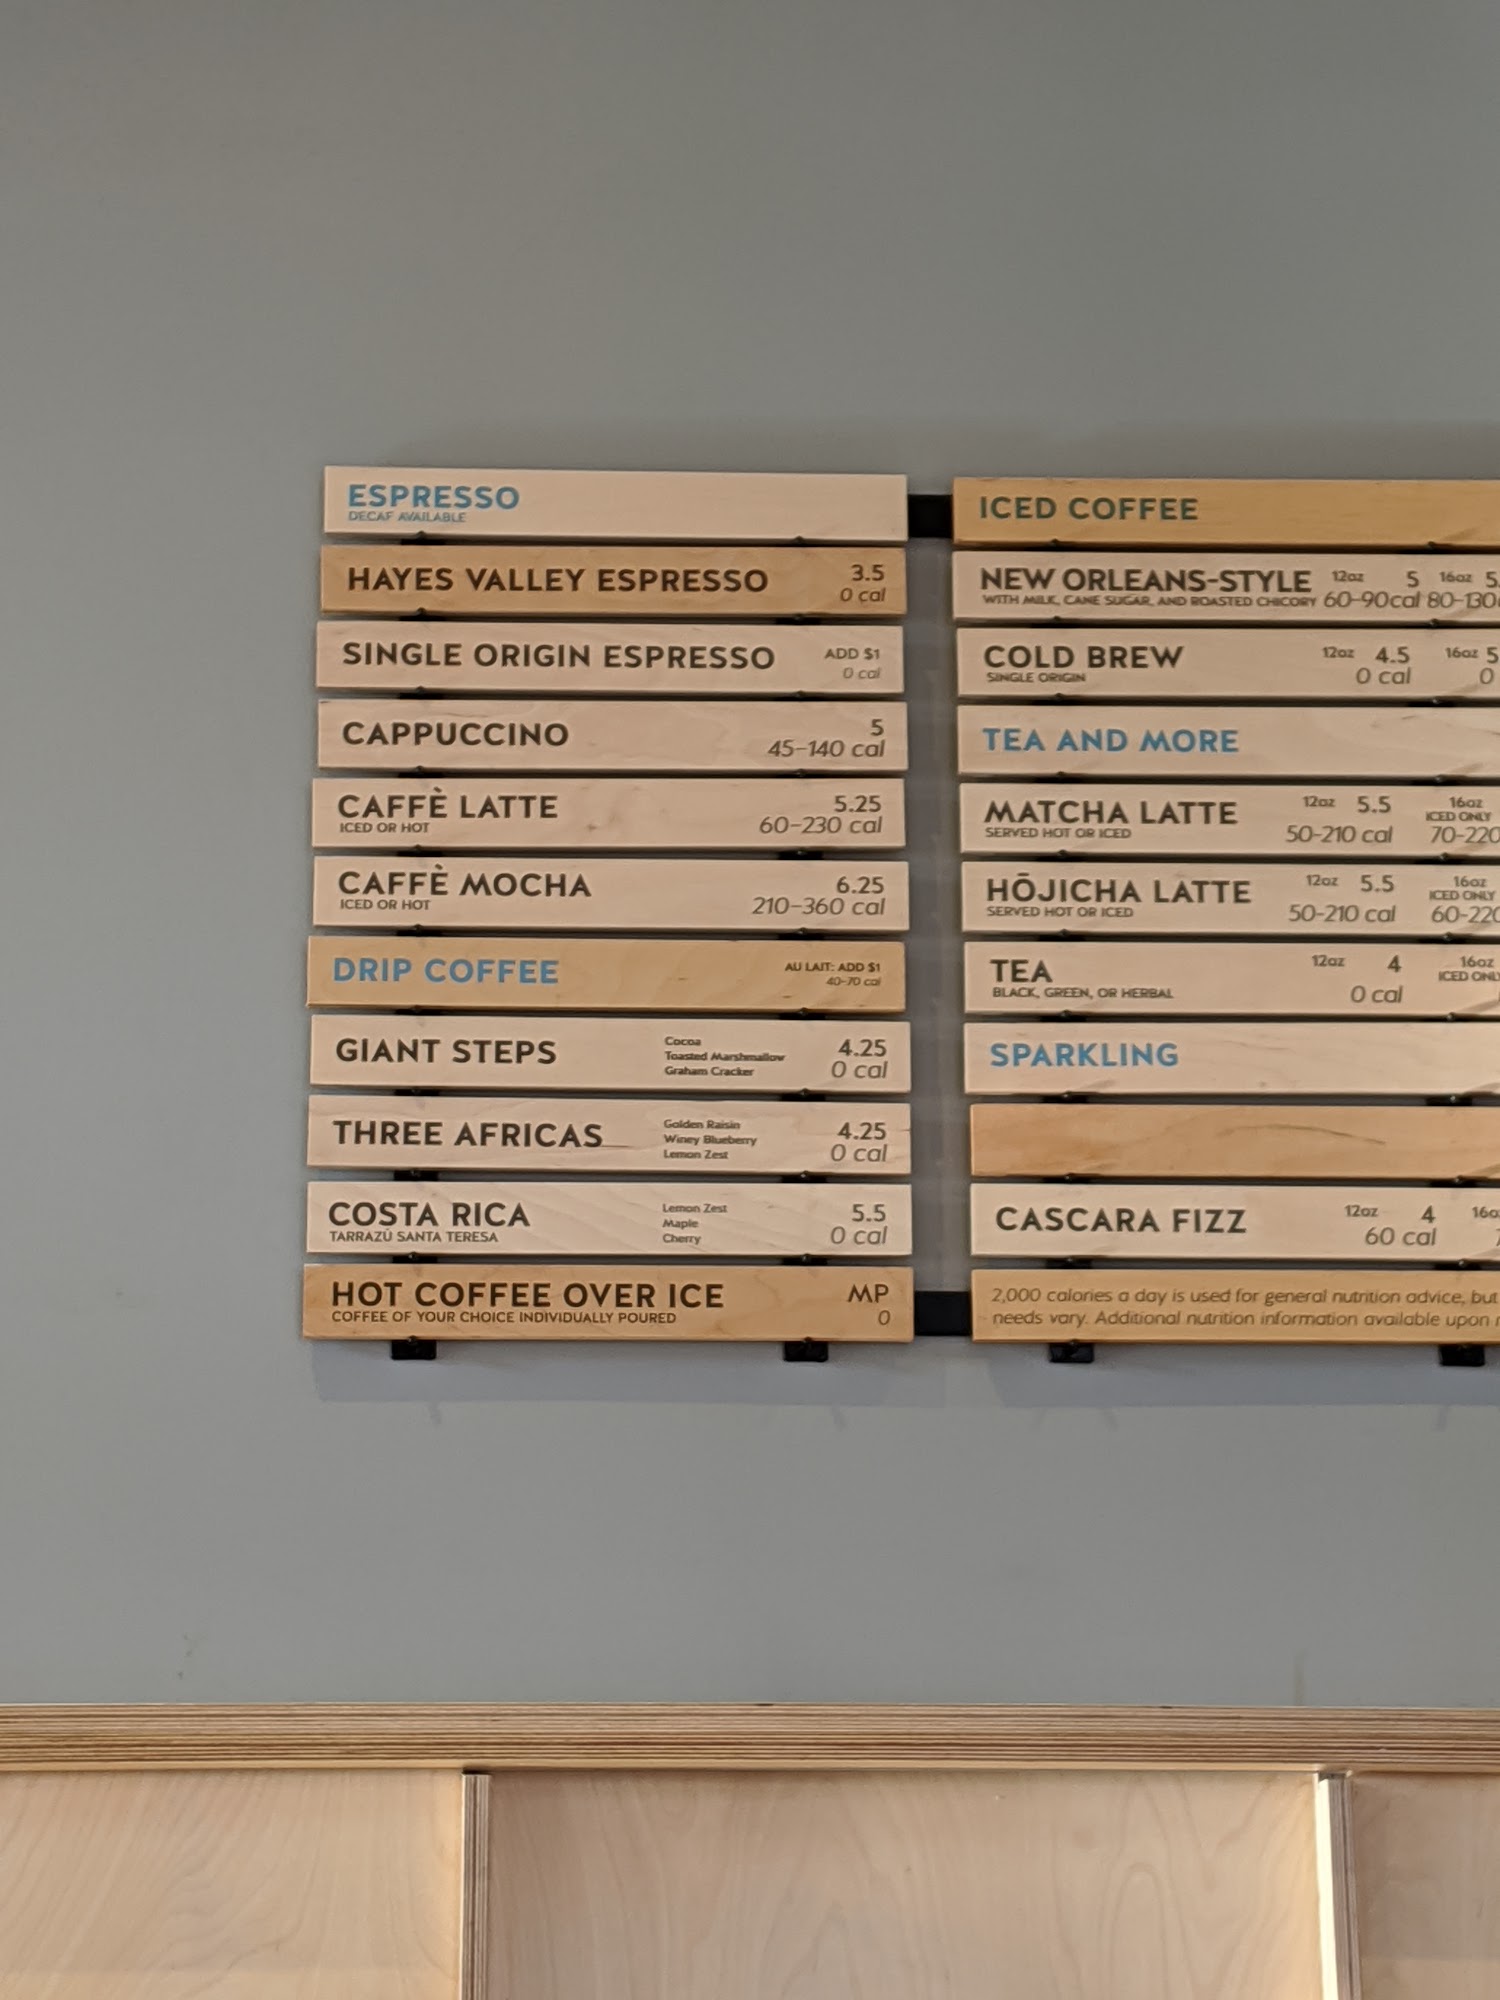 ESPRESSO
DECAF AVAILABLE
HAYES VALLEY ESPRESSO 3.5
0 cal
SINGLE ORIGIN ESPRESSO ADD $1
0 cal
CAPPUCCINO 5
45-140 cal
CAFFÈ LATTE 5.25
ICED OR HOT 60-230 cal
CAFFÈ MOCHA 6.25
ICED OR HOT 210-360 cal
DRIP COFFEE AU LAIT: ADD $1
40-70 cal
GIANT STEPS 4.25
Cocoa
Toasted Marshmallow
Graham Cracker
0 cal
THREE AFRICAS 4.25
Golden Raisin
Winey Blueberry
Lemon Zest
0 cal
COSTA RICA 5.5
TARRAZÚ SANTA TERESA
Lemon Zest
Maple
Cherry
0 cal
HOT COFFEE OVER ICE MP
COFFEE OF YOUR CHOICE INDIVIDUALLY POURED 0
ICED COFFEE
NEW ORLEANS-STYLE 12oz 5 16oz 5.
WITH MILK, CANE SUGAR, AND ROASTED CHICORY 60-90cal 80-130
COLD BREW 12oz 4.5 16oz 5
SINGLE ORIGIN 0 cal 0
TEA AND MORE
MATCHA LATTE 12oz 5.5 16oz
ICED ONLY
SERVED HOT OR ICED 50-210 cal 70-220
HŌJICHA LATTE 12oz 5.5 16oz
ICED ONLY
SERVED HOT OR ICED 50-210 cal 60-220
TEA 12oz 4 16oz
ICED ONLY
BLACK, GREEN, OR HERBAL 0 cal
SPARKLING
CASCARA FIZZ 12oz 4 16o
60 cal
2,000 calories a day is used for general nutrition advice, but
needs vary. Additional nutrition information available upon